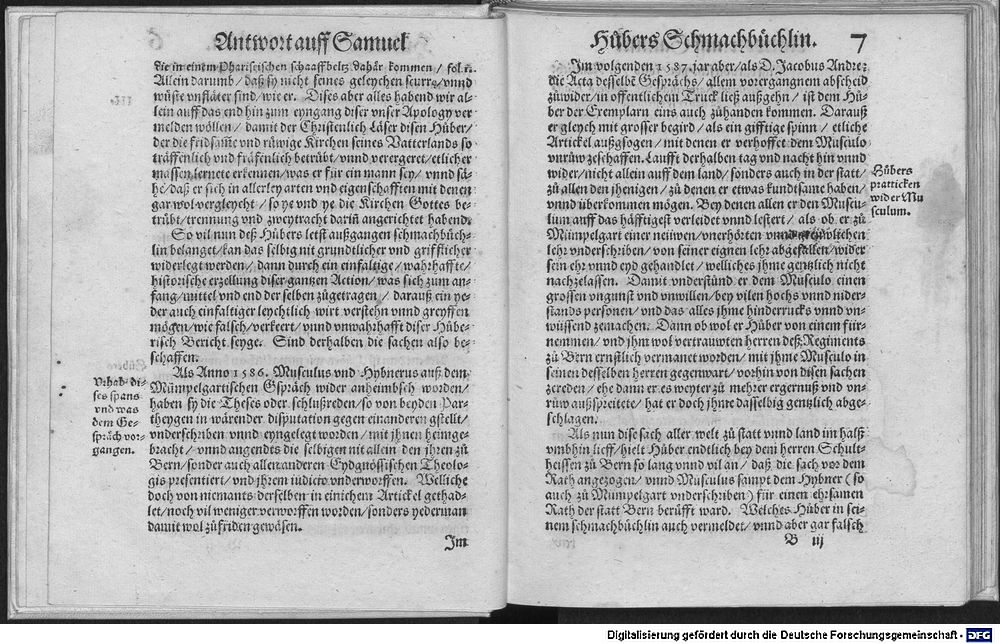 Antwort auff Samuel
die in einem Phariseischen schaaffbeltz dahär kommen / fol. 11.
Allein darumb / daß sy nicht seines geleychen scurre / vnnd
wüste vnfläter sind / wie er. Dises aber alles habend wir al-
lein auff das end hin zum eyngang diser vnser Apology ver
melden wöllen / damit der Christenlich Läser disen Hüber /
der die fridsame vnd rüwige Kirchen seines Vatterlands so
träffenlich vnd fräfenlich betrübt / vnnd verergeret / etlicher
massen lernete erkennen / was er für ein mann sey / vnnd sä-
he / daß er sich in allerley arten vnd eigenschafften mit denen
gar wol vergleycht / so ye vnd ye die Kirchen Gottes be-
trübt / trennung vnd zweytracht dariñ angerichtet habend.
So vil nun deß Hübers letst außgangen schmachbüch-
lin belanget / kan das selbig nit grundtlicher vnd grifflicher
widerlegt werden / dann durch ein einfaltige / wahrhaffte /
historische erzellung diser gantzen Action / was sich zum an-
fang / mittel vnd end der selben zůgetragen / darauß ein ye-
der auch einfaltiger leychtlich wirt verstehn vnnd greyffen
mögen / wie falsch / verkeert / vnnd vnwahrhafft diser Hübe-
risch Bericht seyge. Sind derhalben die sachen also be-
schaffen.
Vrhab di-
ses spans
vnd was
dem Ge-
spräch vor-
gangen.
Als Anno 1586. Musculus vnd Hybnerus auß dem
Mümpelgartischen Gspräch wider anheimbsch worden /
haben sy die Theses oder schlußreden / so von beyden Par-
theygen in wärender disputation gegen einanderen gstellt /
vnderschriben vnnd eyngelegt worden / mit jhnen heimge-
bracht / vnnd angendts die selbigen nit allein den jhren zů
Bern / sonder auch allen anderen Eydgnössischen Theolo-
gis presentiert / vnd jhrem iudicio vnderworffen. Welliche
doch von niemants derselben in einichem Artickel gethad-
let / noch vil weniger verworffen worden / sonders yederman
damit wol zůfriden gewäsen.
Im
Hübers Schmachbüchlin. 7
Im volgenden 1587. jar aber / als D. Jacobus Andree
die Acta desselbē Gesprächs / allem vorergangnem abscheid
zůwider / in offentlichem Truck ließ außgehn / ist dem Hü-
ber der Exemplarn eins auch zůhanden kommen. Darauß
er gleych mit grosser begird / als ein gifftige spinn / etliche
Artickel außgsogen / mit denen er verhoffet dem Musculo
vnrůw zeschaffen. Laufft derhalben tag vnd nacht hin vnnd
wider / nicht allein auff dem land / sonders auch in der statt /
zů allen den jhenigen / zů denen er etwas kundtsame haben /
vnnd überkommen mögen. Bey denen allen er den Muscu-
lum auff das häfftigest verleidet vnnd lestert / als ob er zů
Mümpelgart einer neüwen / vnerhörten vnnd
lehr vnderschriben / von seiner eignen lehr abgefallen / wider
sein ehr vnnd eyd gehandlet / welliches jhme gentzlich nicht
nachzelassen. Damit vnderstůnd er dem Musculo einen
grossen vngunst vnd vnwillen / bey vilen hochs vnnd nider-
stands personen / vnd das alles jhme hinderrucks vnnd vn-
wüssend zemachen. Dann ob wol er Hüber von einem für-
nemmen / vnd jhm wol vertrauwten herren deß Regiments
zů Bern ernstlich vermanet worden / mit jhme Musculo in
seinen desselben herren gegenwart / vorhin von disen sachen
zereden / ehe dann er es weyter zů mehrer ergernuß vnd vn-
rüw außspreitete / hat er doch jhme dasselbig gentzlich abge-
schlagen.
Hübers
pratticken
wider Mu
sculum.
Als nun dise sach aller welt zů statt vnnd land im halß
vmbhin lieff / hielt Hüber endtlich bey dem herren Schult-
heissen zů Bern so lang vnnd vil an / daß die sach vor dem
Rath angezogen / vnnd Musculus sampt dem Hybner ( so
auch zů Mümpelgart vnderschriben ) für einen ehrsamen
Rath der statt Bern berüfft ward. Welches Hüber in sei-
nem schmachbüchlin auch vermeldet / vnnd aber gar falsch
B iij
Digitalisierung gefördert durch die Deutsche Forschungsgemeinschaft - DFG